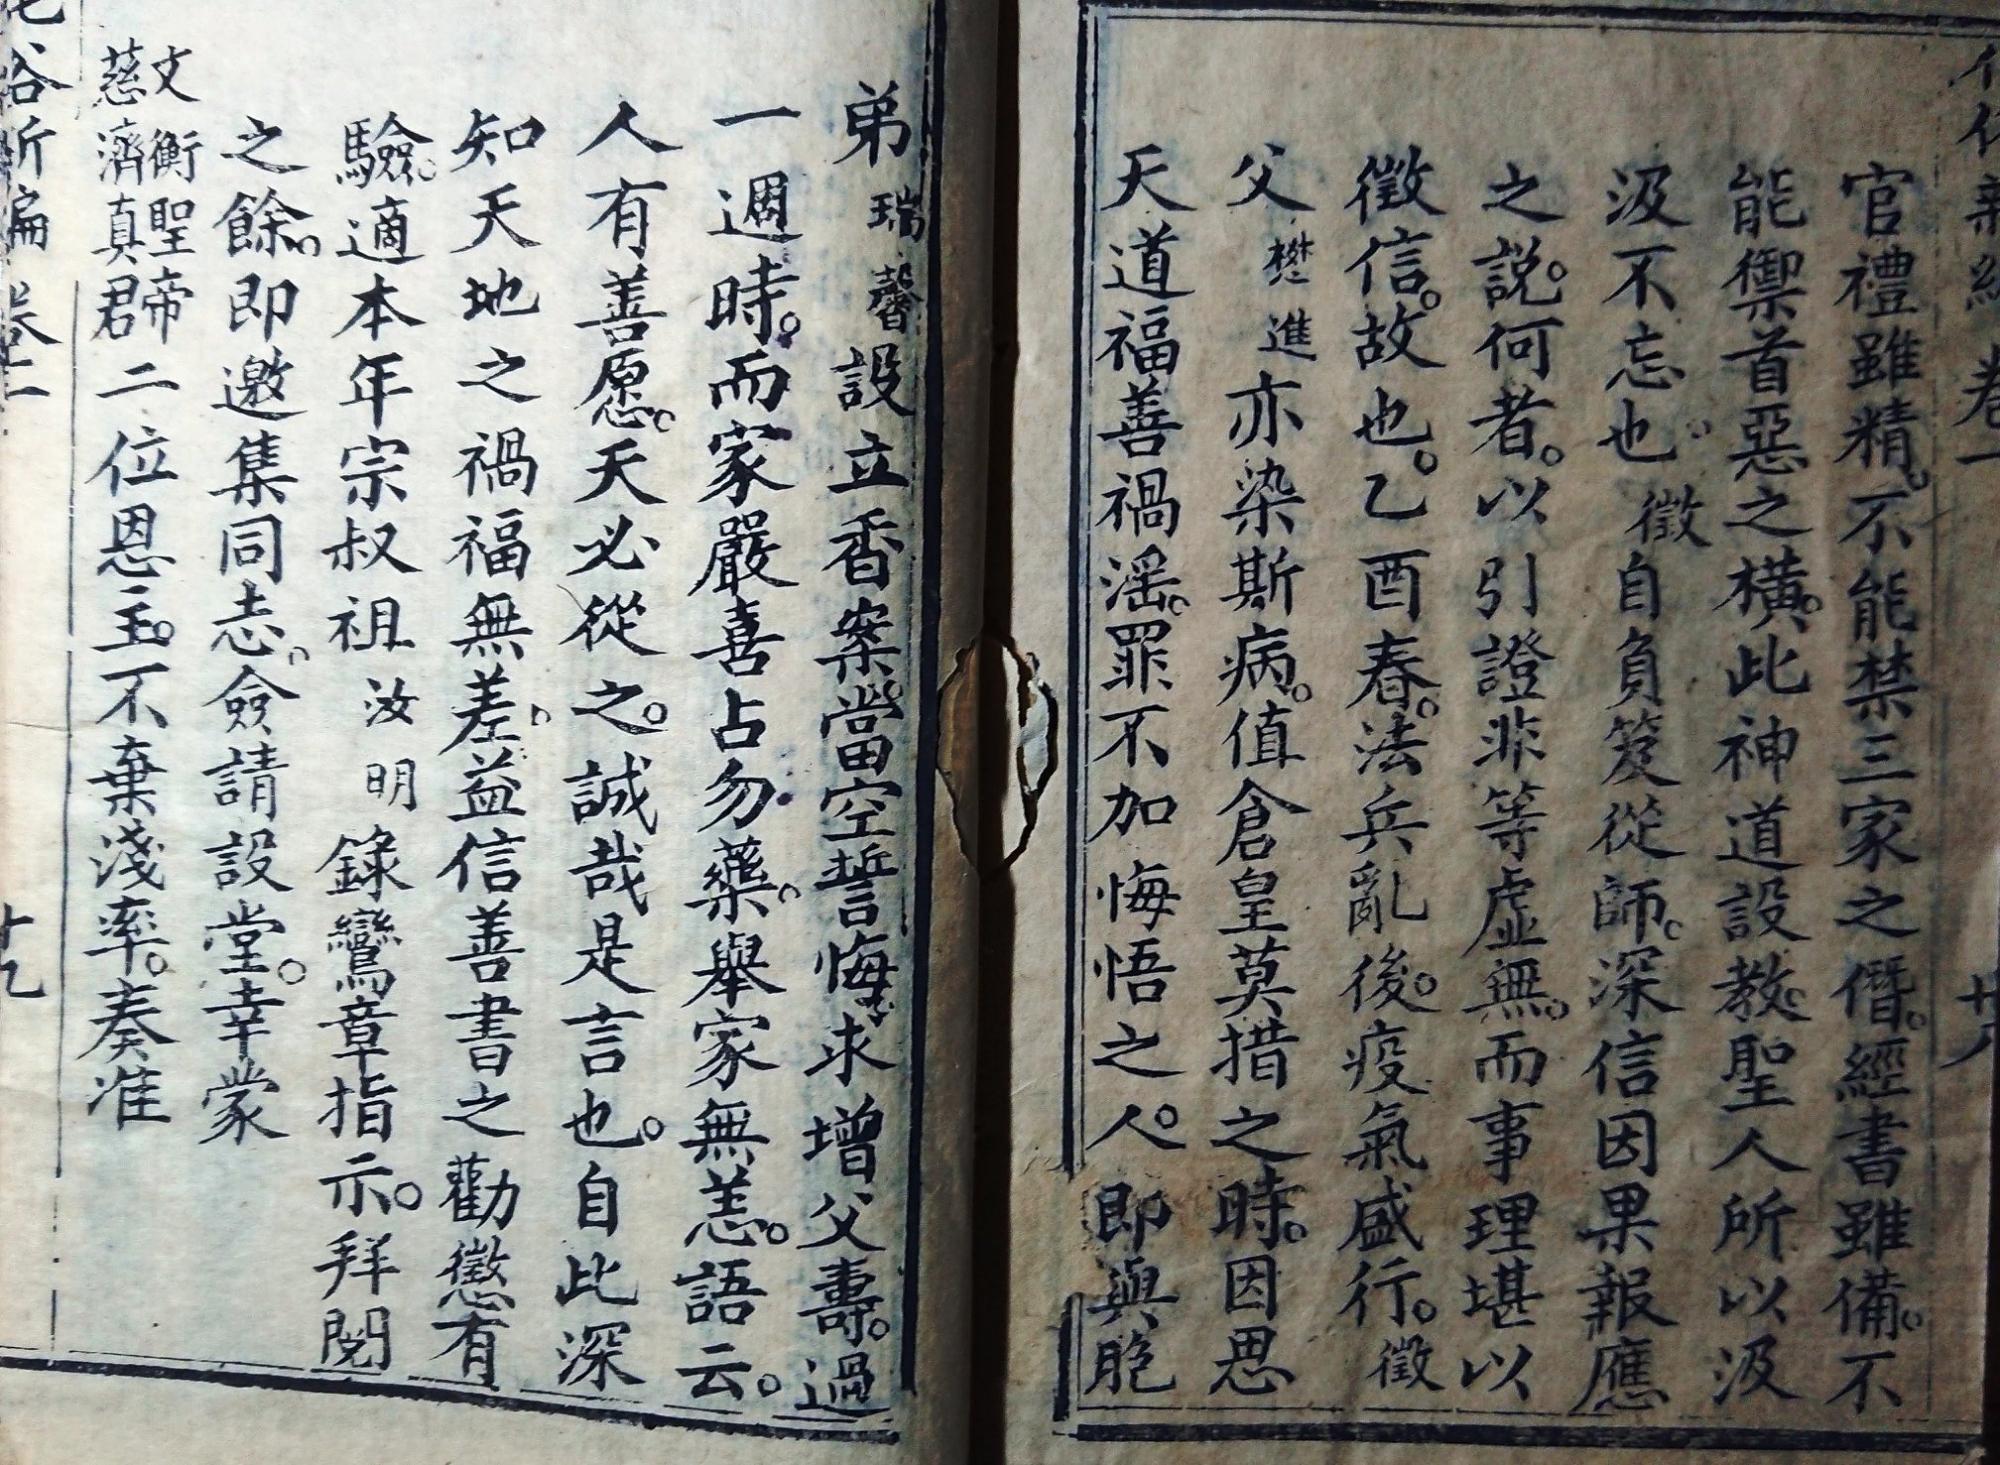 化俗新編 卷一
官禮雖精。不能禁三家之僭。經書雖備。不
能禦首惡之橫。此神道設教。聖人所以汲
汲不忘也。徵自負笈從師。深信因果報應
之說。何者。以引證非等虛無。而事理堪以
徵信。故也。乙酉春。法兵亂後。疫氣盛行。徵
父樊進亦染斯病。值倉皇莫措之時。因思
天道福善禍滛。罪不加悔悟之人。即與胞
弟瑞馨設立香案。當空誓悔。求增父壽。過
一週時。而家嚴喜占勿藥。舉家無恙。語云。
人有善愿。天必從之。誠哉是言也。自此深
知天地之禍福無差。益信善書之勸懲有
驗。適本年宗叔祖汝明錄鸞章指示。拜閱
之餘。即邀集同志。僉請設堂。幸蒙
文衡聖帝
慈濟真君二位恩主。不棄淺率。奏准
化俗新編 卷一